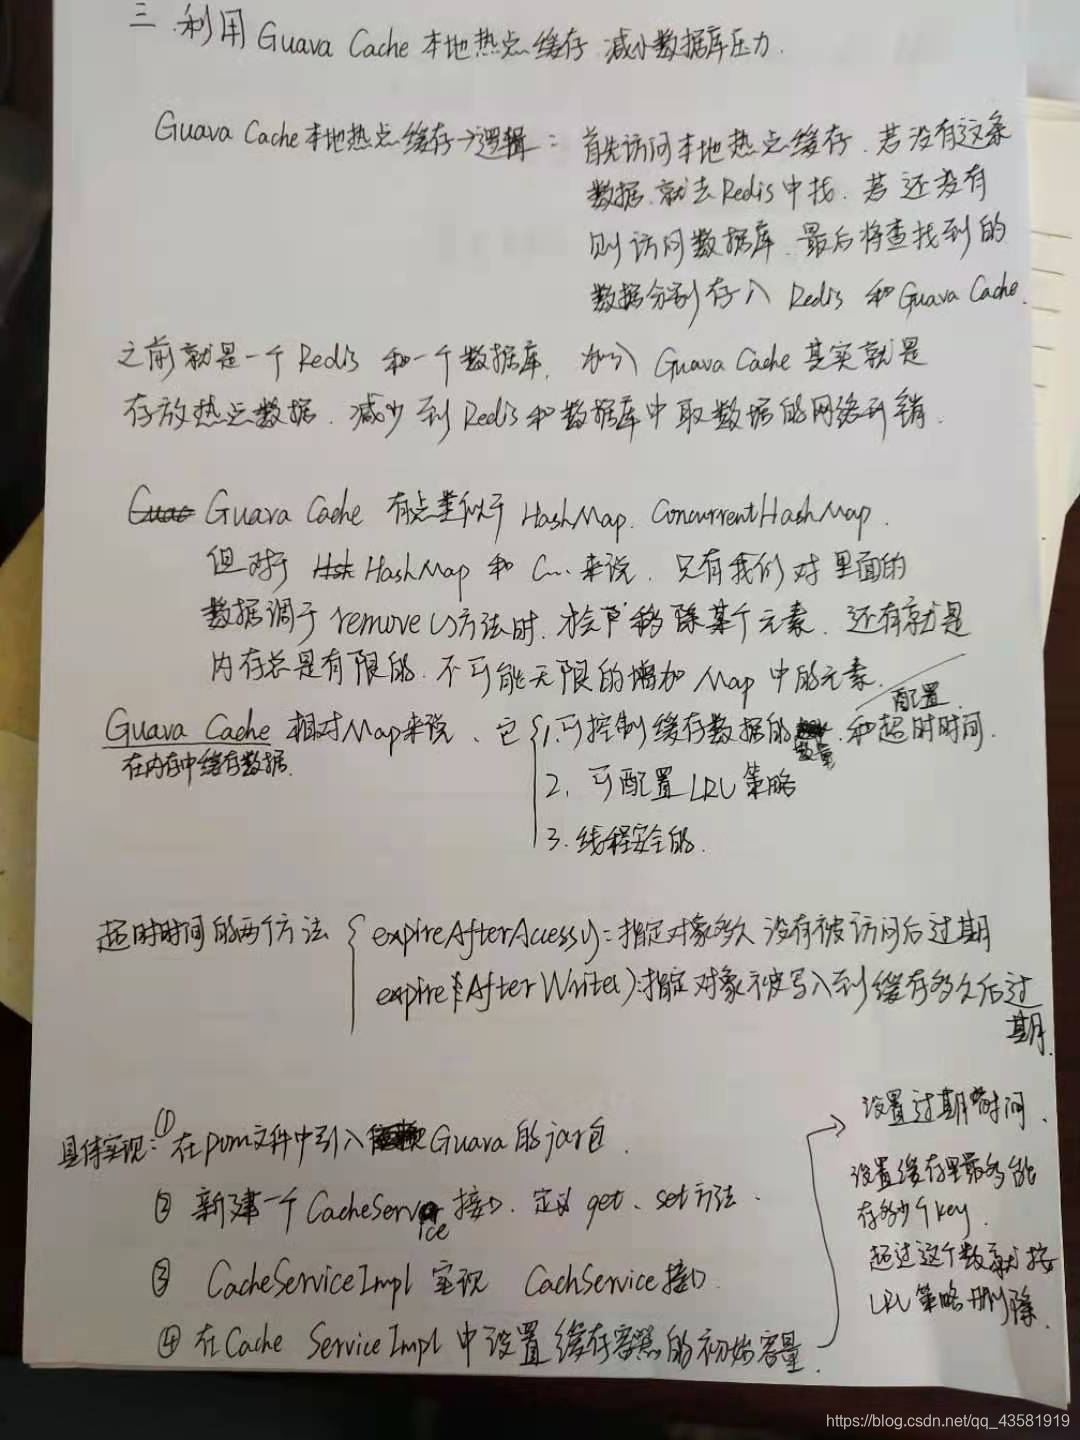 三.利用Guava Cache本地热点缓存.减小数据库压力.
Guava Cache本地热点缓存→逻辑: 首先访问本地热点缓存.若没有这条
数据.就去Redis中找.若还没有
则访问数据库.最后将查找到的
数据分别存入 Redis 和 Guava Cache.
之前就是一个Redis 和一个数据库, 加入 Guava Cache 其实就是
存放热点数据.减少到Redis和数据库中取数据的网络开销.
Guava Cache 有点类似于 HashMap. ConcurrentHashMap.
但对于 HashMap 和 C... 来说.只有我们对里面的
数据调于remove()方法时.才会移除某个元素.还有就是
内存总是有限的.不可能无限的增加 Map 中的元素.
配置
Guava Cache 相对Map来说、它 1.可控制缓存数据的数量.和超时时间.
在内存中缓存数据.
2. 可配置LRU策略
3.线程安全的.
超时时间的两个方法 { expireAfterAccess():指定对象多久没有被访问后过期
expireAfterWrite():指定对象被写入到缓存多久后过
期.
具体实现:① 在pom文件中引入Guava的jar包.
② 新建一个CacheService接口.定义get、set方法.
③ CacheServiceImpl 实现 CachService接口.
④ 在Cache ServiceImpl 中设置缓存容器的初始容量.
设置过期时间.
设置缓存里最多能
存多少个key.
超过这个数就按
LRU策略删除.
https://blog.csdn.net/qq_43581919